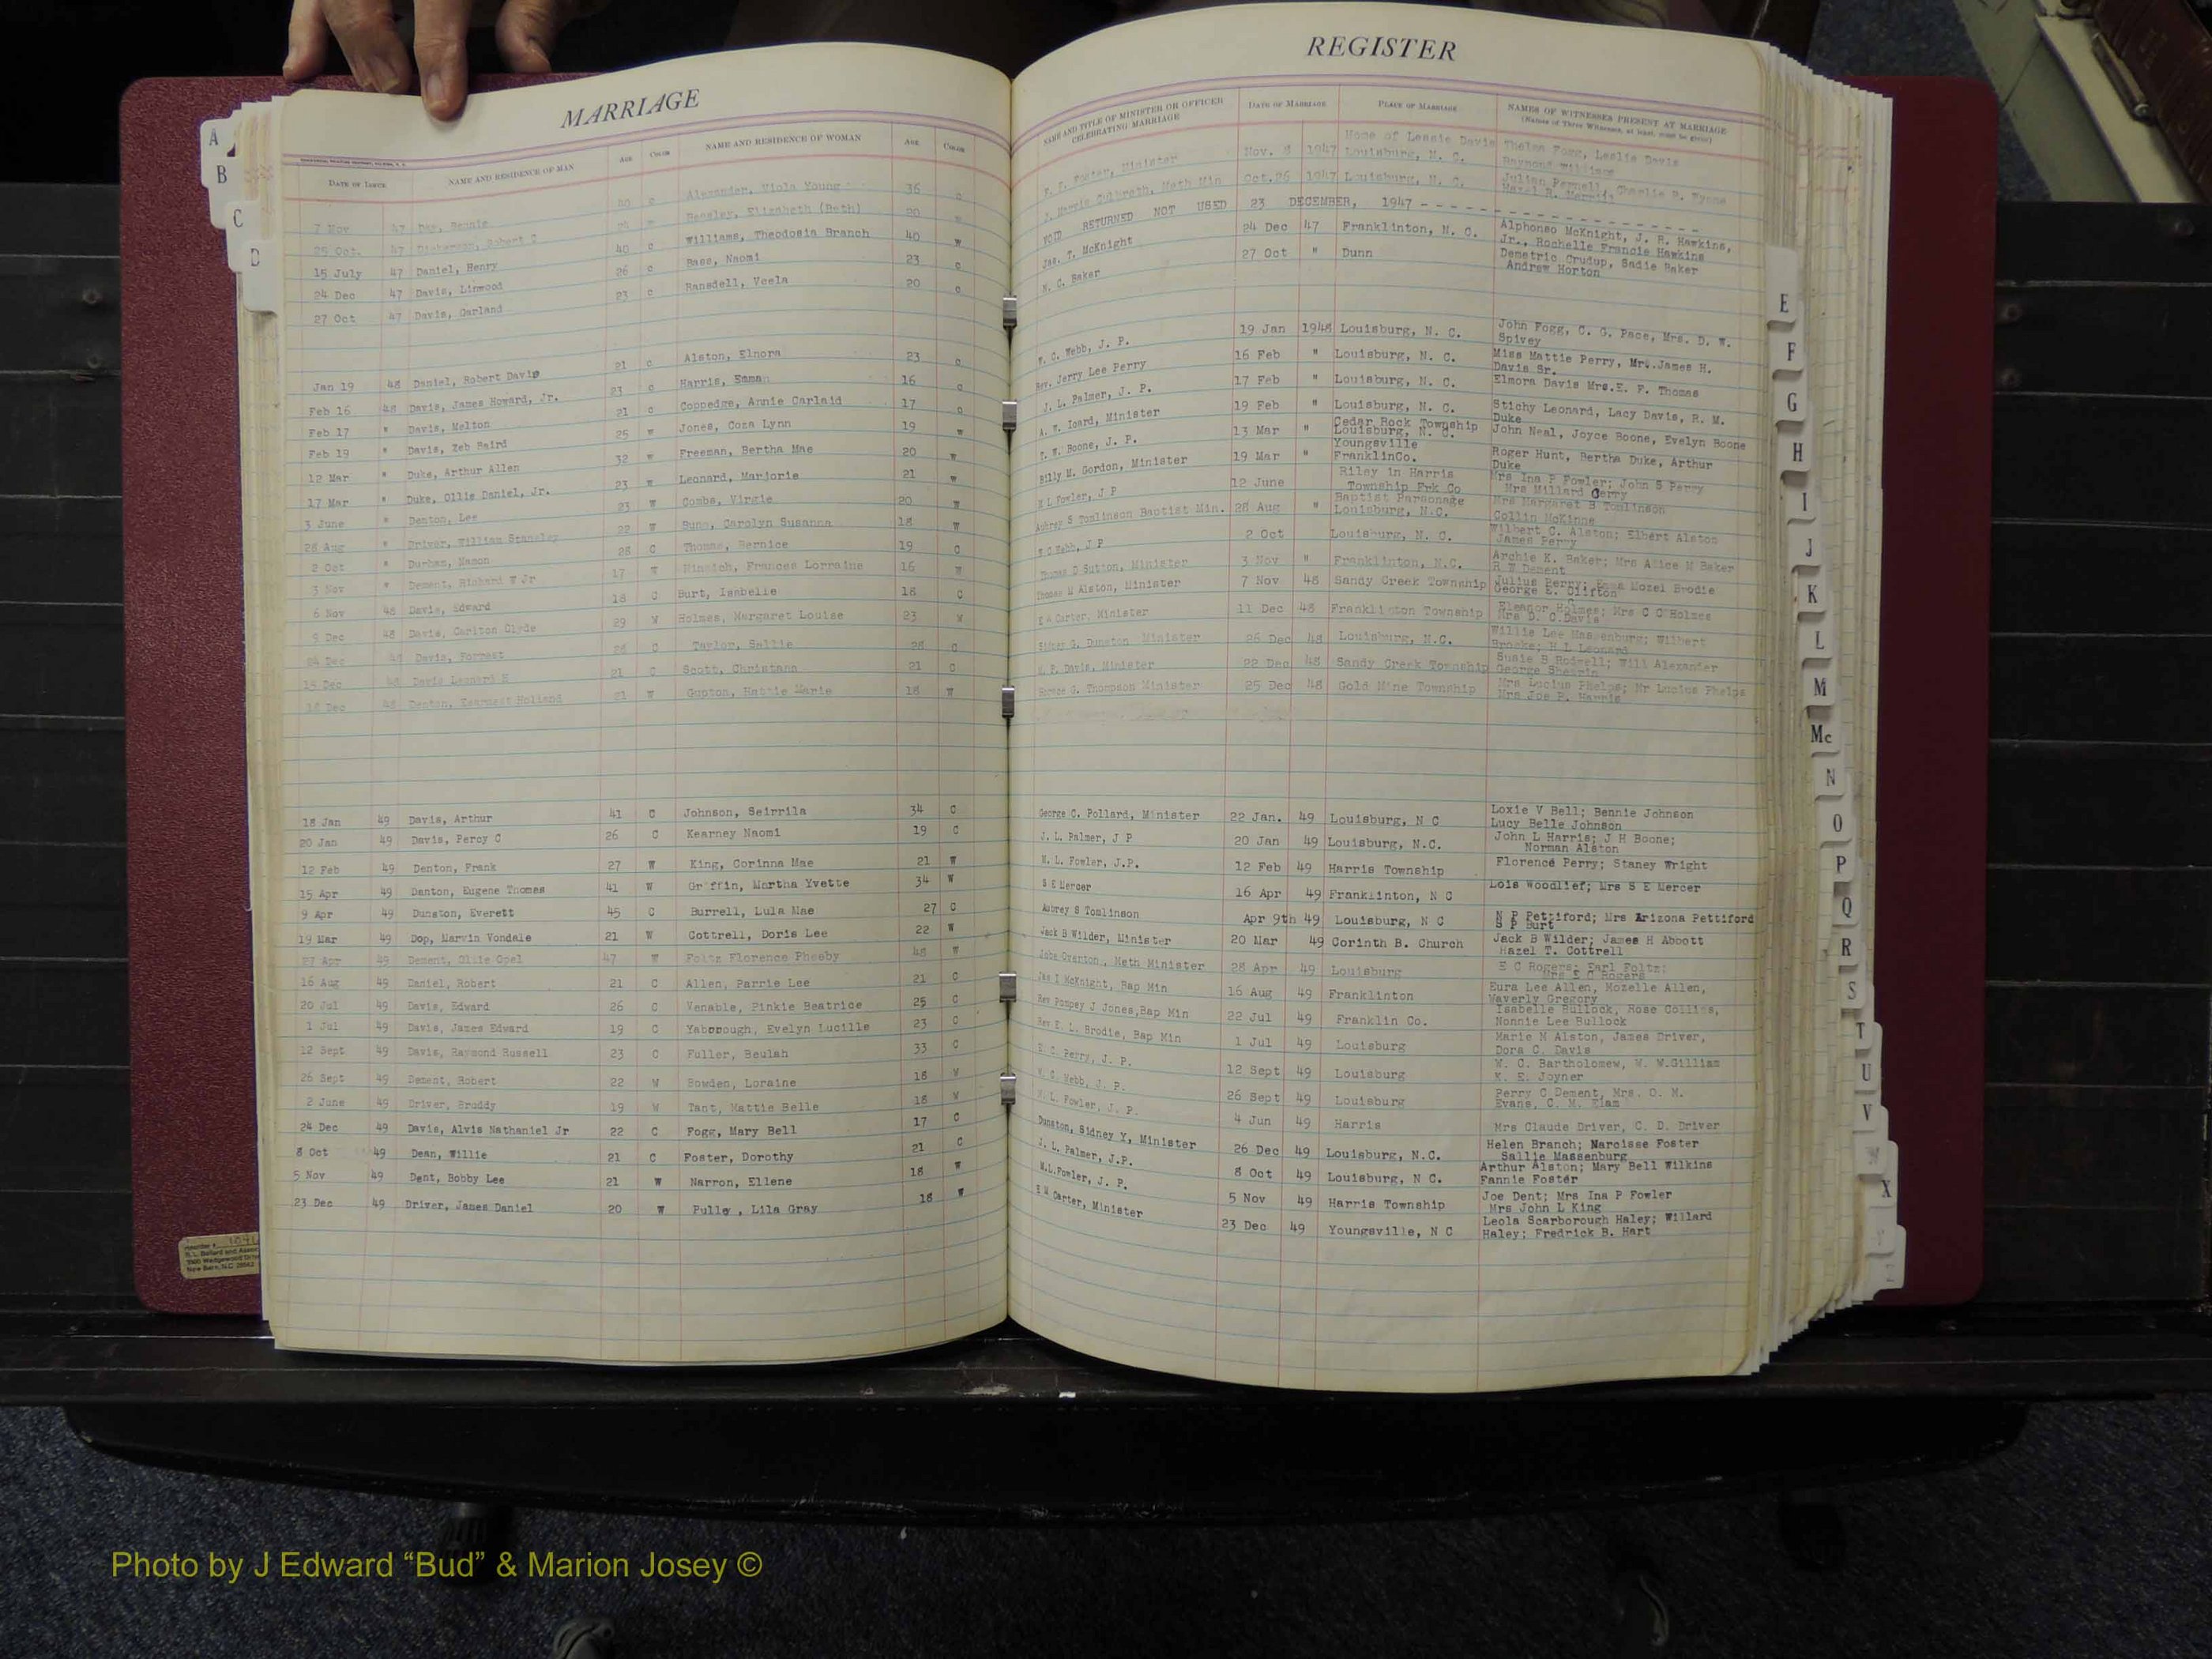 MARRIAGE
DATE OF ISSUE NAME AND RESIDENCE OF MAN AGE COLOR NAME AND RESIDENCE OF WOMAN AGE COLOR
7 Nov 47 Day, 40 c Alexander, Viola Young 36 c
25 Oct. 47 Beasley, Elizabeth (Beth) 20
15 July 47 Daniel, Henry 40 c Williams, Theodosia Branch 40
24 Dec 47 Davis, Linwood 26 c Bass, Naomi 23 c
27 Oct 47 Davis, Garland 23 c Ransdell, Veela 20 c
Jan 19 48 Daniel, Robert Davis 21 c Alston, Elnora 23 c
Feb 16 48 Davis, James Howard, Jr. 23 c Harris, Emma 16 c
Feb 17 " Davis, Melton 21 c Coppedge, Annie Carlaid 17 c
Feb 19 " Davis, Zeb Baird 25 w Jones, Coza Lynn 19 w
12 Mar " Duke, Arthur Allen 32 w Freeman, Bertha Mae 20 w
17 Mar " Duke, Ollie Daniel, Jr. 23 w Leonard, Marjorie 21 w
3 June " Denton, Lee 23 W Combs, Virgie 20 W
28 Aug " Driver, William Stanely 22 W Bunn, Carolyn Susanna 18 W
2 Oct " Durham, Mason 28 C Thomas, Bernice 19 C
3 Nov " Dement, Richard W Jr 17 W Frances Lorraine 16 W
6 Nov 48 Davis, Edward 18 C Burt, Isabelle 18 C
9 Dec 48 Davis, Carlton Clyde 29 W Holmes, Margaret Louise 23 W
24 Dec 48 Davis, Forrest 28 C Taylor, Sallie 28 C
15 Dec 48 Davis Leonard 21 C Scott, Christann 21 C
18 Dec 48 Denton, Earnest Holland 21 W Gupton, Hattie Marie 18 W
18 Jan 49 Davis, Arthur 41 C Johnson, Seirrila 34 C
20 Jan 49 Davis, Percy C 26 C Kearney Naomi 19 C
12 Feb 49 Denton, Frank 27 W King, Corinna Mae 21 W
15 Apr 49 Denton, Eugene Thomas 41 W Griffin, Martha Yvette 34 W
9 Apr 49 Dunston, Everett 45 C Burrell, Lula Mae 27 C
19 Mar 49 Dop, Marvin Vondale 21 W Cottrell, Doris Lee 22 W
27 Apr 49 Dement, Ollie Opel 47 W Foltz Florence Pheeby 48 W
16 Aug 49 Daniel, Robert 21 C Allen, Parrie Lee 21 C
20 Jul 49 Davis, Edward 26 C Venable, Pinkie Beatrice 25 C
1 Jul 49 Davis, James Edward 19 C Yabobough, Evelyn Lucille 23 C
12 Sept 49 Davis, Raymond Russell 23 C Fuller, Beulah 33 C
26 Sept 49 Dement, Robert 22 W Bowden, Loraine 18 W
2 June 49 Driver, Bruddy 19 W Tant, Mattie Belle 18 W
24 Dec 49 Davis, Alvis Nathaniel Jr 22 C Fogg, Mary Bell 17 C
8 Oct 49 Dean, Willie 21 C Foster, Dorothy 21 C
5 Nov 49 Dent, Bobby Lee 21 W Narron, Ellene 18 W
23 Dec 49 Driver, James Daniel 20 W Pulley, Lila Gray 18 W
REGISTER
NAME AND TITLE OF MINISTER OR OFFICER CELEBRATING MARRIAGE DATE OF MARRIAGE PLACE OF MARRIAGE NAMES OF WITNESSES PRESENT AT MARRIAGE
(Names of Three Witnesses, at least, must be given)
Foster, Minister Nov. 8 1947 Home of Lessie Davis Thelma Fogg, Leslie Davis
Louisburg, N. C. Raymond Williams
J. Harris Culbreth, Meth Min Oct.26 1947 Louisburg, N. C. Julian Pernell, Charlie P. Tyson
VOID RETURNED NOT USED 23 DECEMBER, 1947
Jas. T. McKnight 24 Dec 47 Franklinton, N. C. Alphonso McKnight, J. R. Hawkins,
Jr., Rochelle Francie Hawkins
N. C. Baker 27 Oct " Dunn Demetric Crudup, Sadie Baker
Andrew Horton
W. C. Webb, J. P. 19 Jan 1948 Louisburg, N. C. John Fogg, C. G. Pace, Mrs. D. W.
Spivey
Rev. Jerry Lee Perry 16 Feb " Louisburg, N. C. Miss Mattie Perry, Mr. James H.
Davis Sr.
J. L. Palmer, J. P. 17 Feb " Louisburg, N. C. Elmora Davis Mrs.E. F. Thomas
A. W. Icard, Minister 19 Feb " Louisburg, N. C. Stichy Leonard, Lacy Davis, R. M.
Duke
T. W. Boone, J. P. 13 Mar " Cedar Rock Township John Neal, Joyce Boone, Evelyn Boone
Louisburg, N. C.
Billy M. Gordon, Minister 19 Mar " Youngsville Roger Hunt, Bertha Duke, Arthur
FranklinCo. Duke
M L Fowler, J P 12 June Riley in Harris Mrs Ina P Fowler; John S Perry
Township Frk Co Mrs Millard Perry
Aubrey S Tomlinson Baptist Min. 28 Aug " Baptist Parsonage Mrs Margaret B Tomlinson
Louisburg, N.C. Collin McKinne
W C Webb, J P 2 Oct Louisburg, N. C. Wilbert C. Alston; Elbert Alston
James Perry
Thomas D Sutton, Minister 3 Nov " Franklinton, N.C. Archie K. Baker; Mrs Alice M Baker
R W Dement
Thomas M Alston, Minister 7 Nov 48 Sandy Creek Township Julius Perry; Emma Mozel Brodie
George E. Clifton
E M Carter, Minister 11 Dec 48 Franklinton Township Eleanor Holmes; Mrs C C Holmes
Mrs D. C.Davis
Sidney G. Dunston Minister 26 Dec 48 Louisburg, N.C. Willie Lee Massenburg; Wilbert
Brooks; H L Leonard
M. P. Davis, Minister 22 Dec 48 Sandy Creek Township Susie B Rodwell; Will Alexander
George Shearin
Horace G. Thompson Minister 25 Dec 48 Gold Mine Township Mrs Lucius Phelps; Mr Lucius Phelps
Mrs Joe P. Harris
George C. Pollard, Minister 22 Jan. 49 Louisburg, N C Loxie V Bell; Bennie Johnson
Lucy Belle Johnson
J. L. Palmer, J P 20 Jan 49 Louisburg, N.C. John L Harris; J H Boone;
Norman Alston
M. L. Fowler, J.P. 12 Feb 49 Harris Township Florence Perry; Staney Wright
S E Mercer 16 Apr 49 Franklinton, N C Lois Woodlief; Mrs S E Mercer
Aubrey S Tomlinson Apr 9th 49 Louisburg, N C N P Pettiford; Mrs Arizona Pettiford
S P Burt
Jack B Wilder, Minister 20 Mar 49 Corinth B. Church Jack B Wilder; James H Abbott
Hazel T. Cottrell
John Overton, Meth Minister 28 Apr 49 Louisburg E C Rogers; Earl Foltz;
Mrs E C Rogers
Jas T McKnight, Bap Min 16 Aug 49 Franklinton Eura Lee Allen, Mozelle Allen,
Waverly Gregory
Rev Pompey J Jones,Bap Min 22 Jul 49 Franklin Co. Isabelle Bullock, Rose Collins,
Nonnie Lee Bullock
Rev E. L. Brodie, Bap Min 1 Jul 49 Louisburg Marie M Alston, James Driver,
Dora C. Davis
E. C. Perry, J. P. 12 Sept 49 Louisburg W. C. Bartholomew, W. W.Gilliam
K. E. Joyner
W. C. Webb, J. P. 26 Sept 49 Louisburg Perry C Dement, Mrs. O. M.
Evans, C. M. Elam
M. L. Fowler, J. P. 4 Jun 49 Harris Mrs Claude Driver, C. D. Driver
Dunston, Sidney Y, Minister 26 Dec 49 Louisburg, N.C. Helen Branch; Narcisse Foster
Sallie Massenburg
J. L. Palmer, J.P. 8 Oct 49 Louisburg, N C. Arthur Alston; Mary Bell Wilkins
Fannie Foster
M.L.Fowler, J. P. 5 Nov 49 Harris Township Joe Dent; Mrs Ina P Fowler
Mrs John L King
E M Carter, Minister 23 Dec 49 Youngsville, N C Leola Scarborough Haley; Willard
Haley; Fredrick B. Hart
A
B
C
D
E
F
G
H
I
J
K
L
M
Mc
N
O
P
Q
R
S
T
U
V
W
X
Y
Z
New Bern, N.C.
Photo by J Edward “Bud” & Marion Josey ©